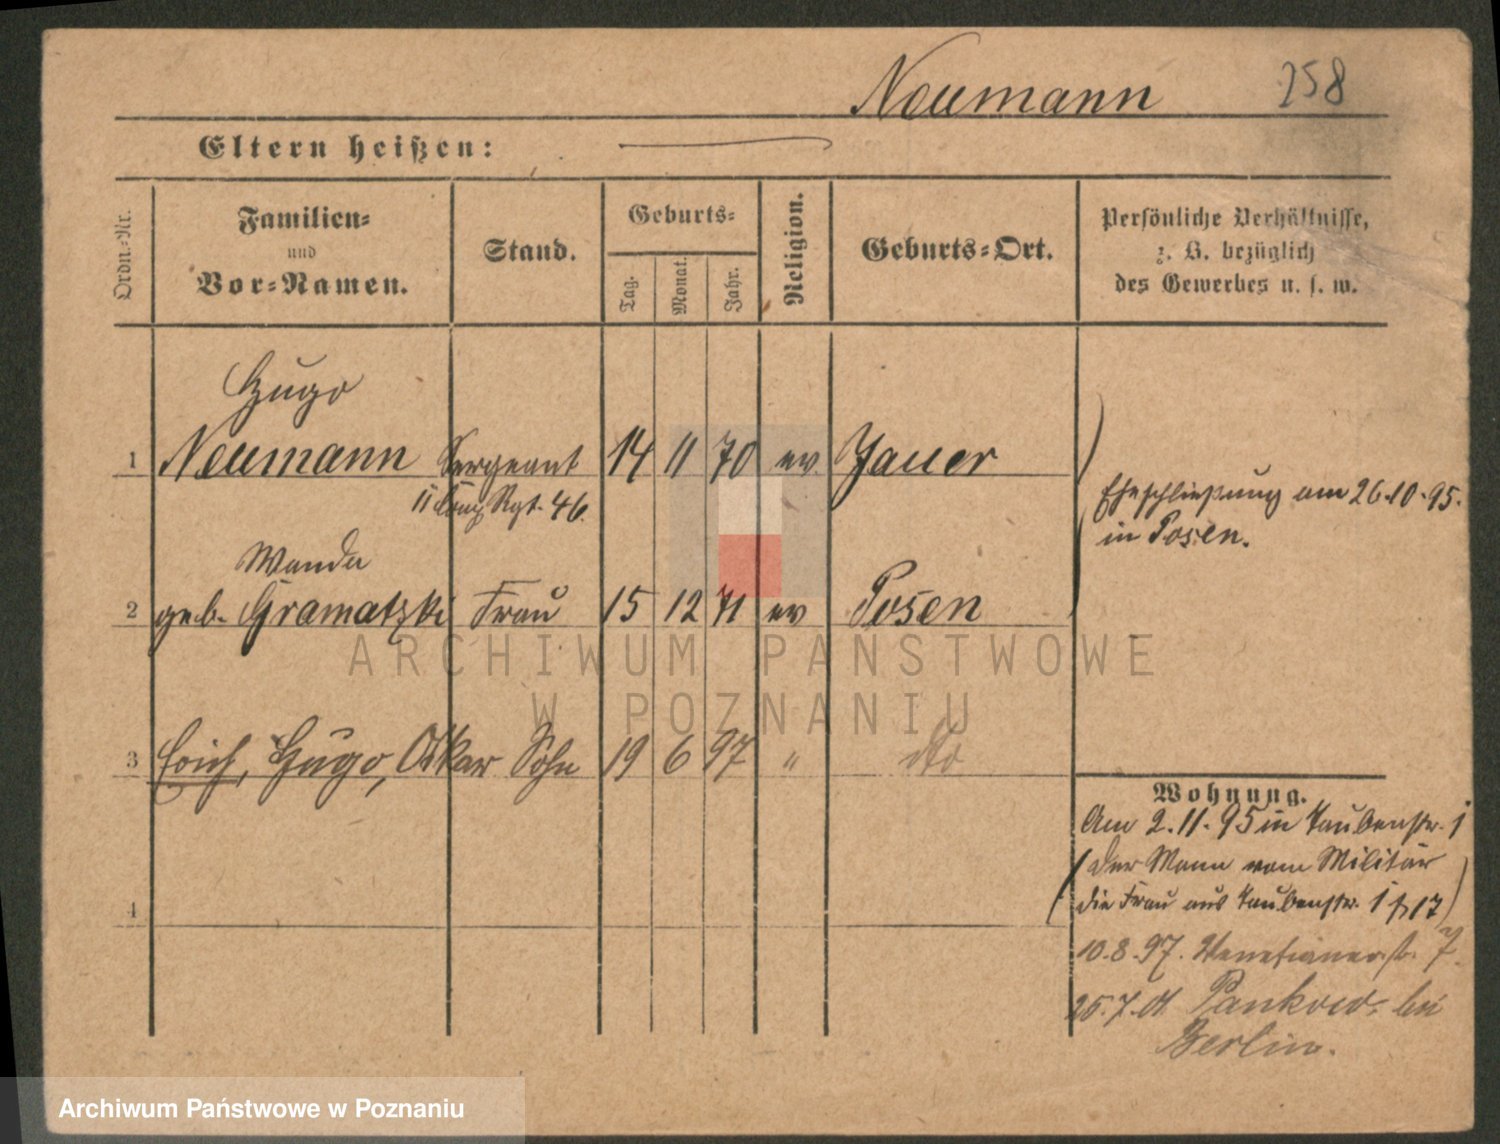 Neumann 258
Eltern heißen:
Ordn.-Nr.
Familien-
und
Vor-Namen.
Stand.
Geburts-
Tag.
Monat.
Jahr.
Religion.
Geburts-Ort.
Persönliche Verhältnisse,
z. B. bezüglich
des Gewerbes u. s. w.
Hugo
1 Neumann Sergeant 14 11 70 ev. Jauer
11 Comp Rgt. 46.
Eheschließung am 26.10.95.
in Posen.
Wanda
2 geb. Gramatzki Frau 15 12 71 ev Posen
3 Erich, Hugo, Oskar Sohn 19 6 97 " dto
4
Wohnung.
Am 2.11.95 in Taubenstr. 1
(der Mann vom Militär
die Frau aus Taubenstr. 1 17)
10.8.97. Venetianerstr. 7.
25.7.01 Pankow bei
Berlin.
ARCHIWUM PAŃSTWOWE
W POZNANIU
Archiwum Państwowe w Poznaniu